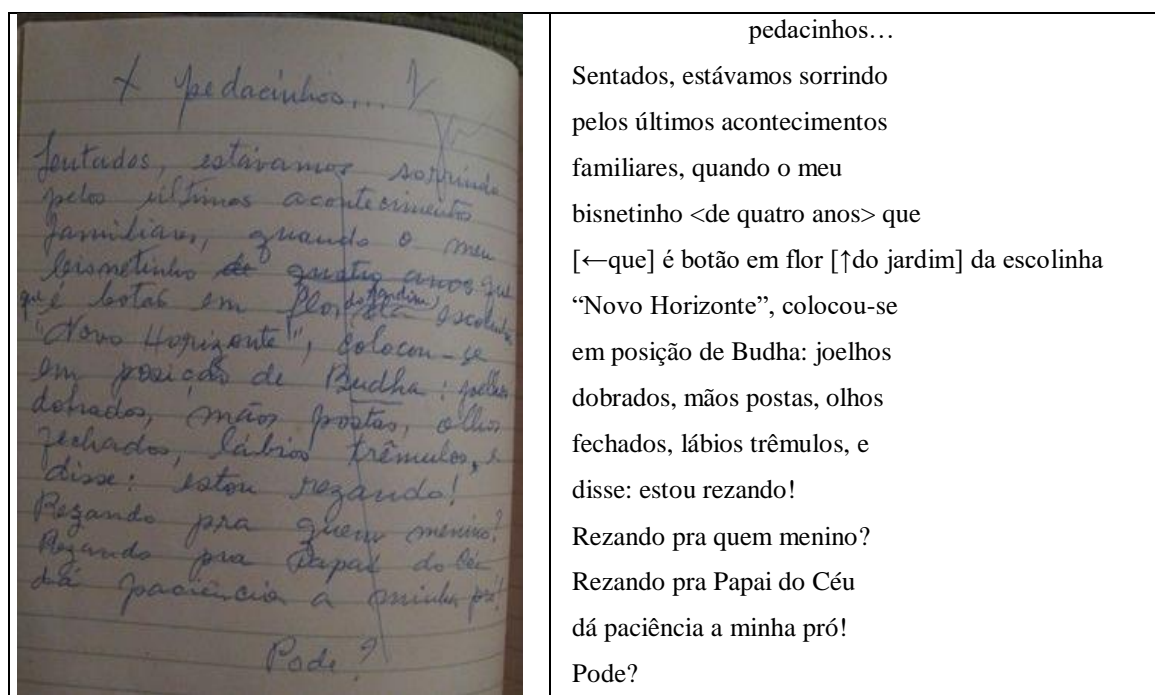 + pedacinhos...
Sentados, estávamos sorrindo
pelos últimos acontecimentos
familiares, quando o meu
bisnetinho de quatro anos que
que é botão em flor do jardim da escolinha
"Novo Horizonte", colocou-se
em posição de Budha: joelhos
dobrados, mãos postas, olhos
fechados, lábios trêmulos, e
disse: estou rezando!
Rezando pra quem menino?
Rezando pra Papai do Céu
dá paciência a minha pró!
Pode?
pedacinhos…
Sentados, estávamos sorrindo
pelos últimos acontecimentos
familiares, quando o meu
bisnetinho <de quatro anos> que
[←que] é botão em flor [↑do jardim] da escolinha
“Novo Horizonte”, colocou-se
em posição de Budha: joelhos
dobrados, mãos postas, olhos
fechados, lábios trêmulos, e
disse: estou rezando!
Rezando pra quem menino?
Rezando pra Papai do Céu
dá paciência a minha pró!
Pode?